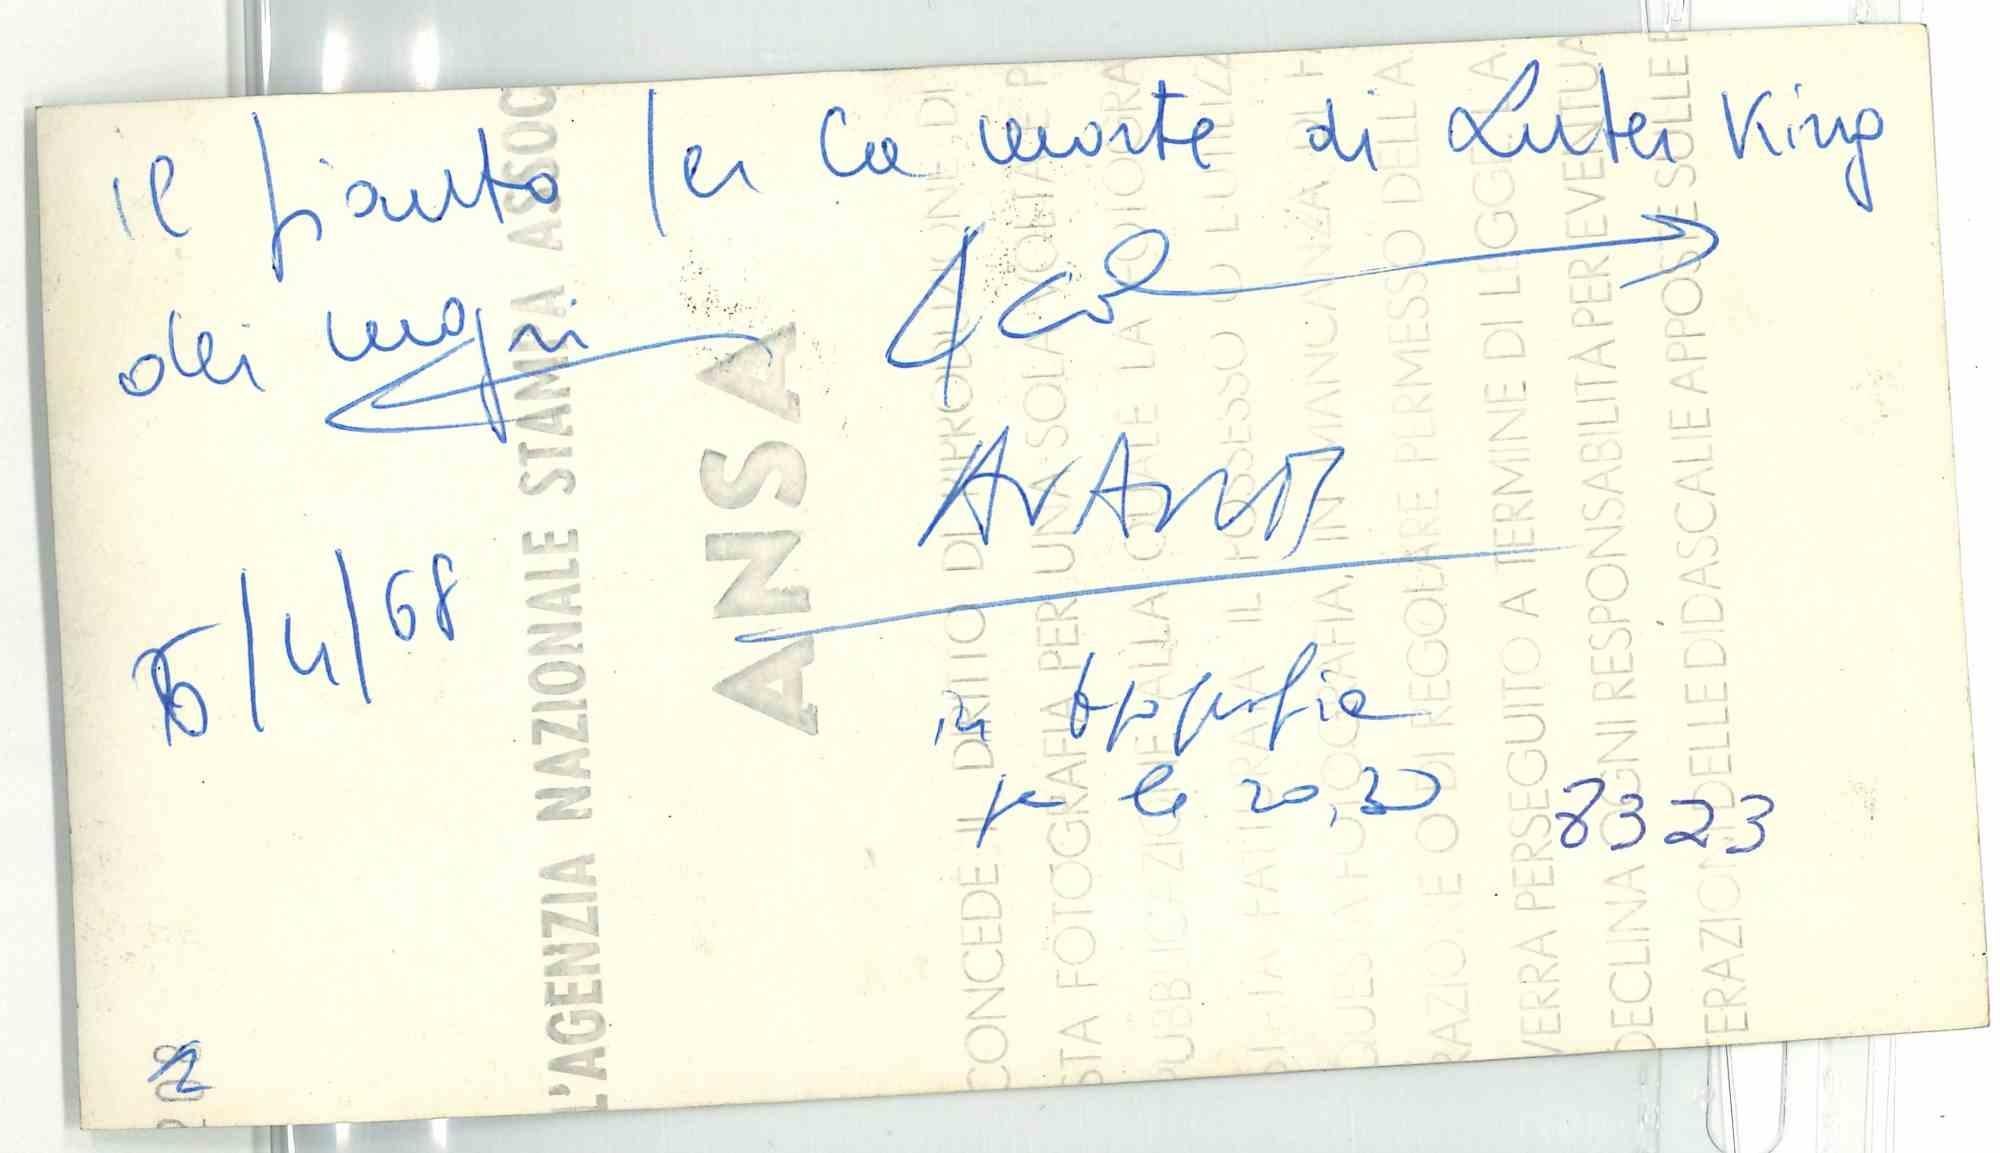 il pianto per la morte di Luter King
dei negri
4 col
AVANTI
5/4/68
in tipografia
per le 20,30
8323
L'AGENZIA NAZIONALE STAMPA ASSOC
ANSA
CONCEDE IL DIRITTO DI RIPRODUZIONE DI
STA FOTOGRAFIA PER UNA SOLA VOLTA E P
PUBBLICAZIONE ALLA QUALE LA FOTOGRA
IL POSSESSO O L'UTILIZZ
QUESTA FOTOGRAFIA, IN MANCANZA DI
RAZIONE O DI REGOLARE PERMESSO DELL'A
VERRA PERSEGUITO A TERMINE DI LEGGE. A
DECLINA OGNI RESPONSABILITA PER EVENTUA
TERAZIONI DELLE DIDASCALIE APPOSTE SULLE F